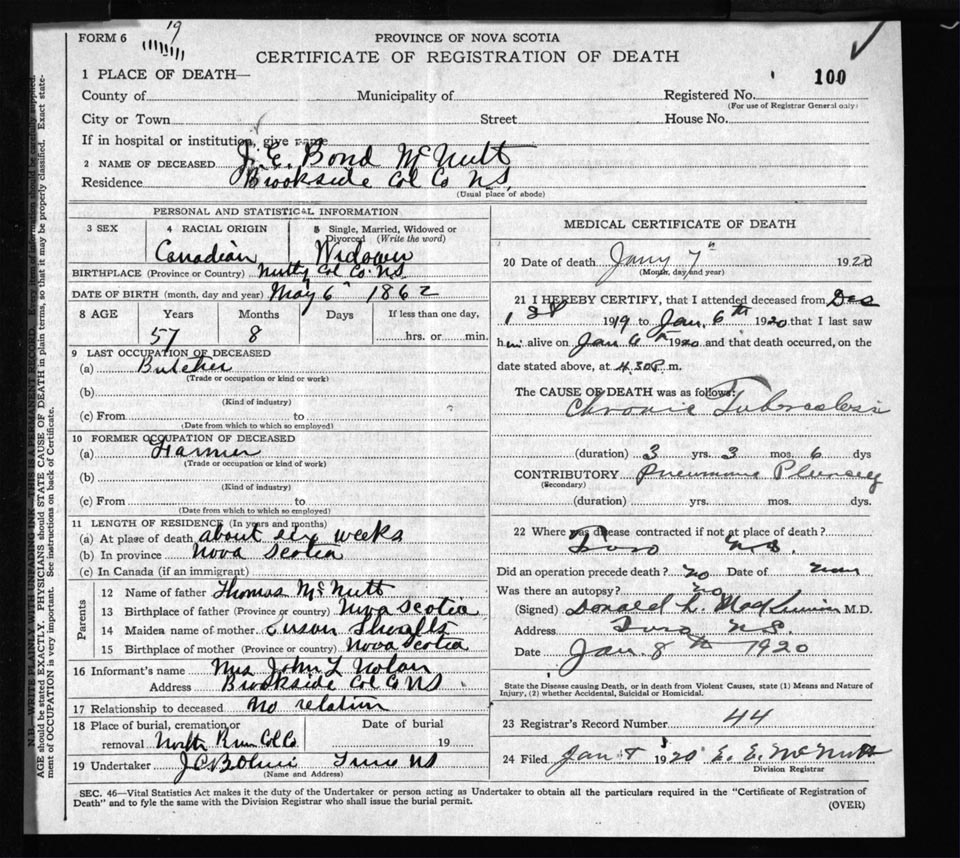 19
FORM 6
PROVINCE OF NOVA SCOTIA
CERTIFICATE OF REGISTRATION OF DEATH
1 PLACE OF DEATH—
100
County of Municipality of Registered No.
(For use of Registrar General only)
City or Town Street House No.
If in hospital or institution, give name
2 NAME OF DECEASED J. E. Bond McNutt
Residence Brookside Col Co N.S.
(Usual place of abode)
PERSONAL AND STATISTICAL INFORMATION
3 SEX 4 RACIAL ORIGIN 5 Single, Married, Widowed or
Divorced (Write the word)
Canadian Widower
BIRTHPLACE (Province or Country) Nutby Col Co. NS
DATE OF BIRTH (month, day and year) May 6" 1862
8 AGE Years Months Days If less than one day,
57 8 hrs. or min.
9 LAST OCCUPATION OF DECEASED
(a) Butcher
(Trade or occupation or kind or work)
(b)
(Kind of industry)
(c) From to
(Date from which to which so employed)
10 FORMER OCCUPATION OF DECEASED
(a) Farmer
(Trade or occupation or kind of work)
(b)
(Kind of industry)
(c) From to
(Date from which to which so employed)
11 LENGTH OF RESIDENCE (In years and months)
(a) At place of death about six weeks
(b) In province Nova Scotia
(c) In Canada (if an immigrant)
Parents
12 Name of father Thomas McNutt
13 Birthplace of father (Province or country) Nova Scotia
14 Maiden name of mother Susan
15 Birthplace of mother (Province or country) Nova Scotia
16 Informant's name Mrs John L Nolan
Address Brookside Col Co NS
17 Relationship to deceased No relation
18 Place of burial, cremation or Date of burial
removal North River Col Co. 19
19 Undertaker Truro NS
(Name and Address)
MEDICAL CERTIFICATE OF DEATH
20 Date of death Jany 7" 1920
(Month, day and year)
21 I HEREBY CERTIFY, that I attended deceased from Dec
1st 1919 to Jan. 6th 1920 that I last saw
him alive on Jan 6th 1920 and that death occurred, on the
date stated above, at 4.30P.m.
The CAUSE OF DEATH was as follows:
Chronic Tuberculosis
(duration) 3 yrs. 3 mos. 6 dys
CONTRIBUTORY Pleurisy
(Secondary)
(duration) yrs. mos. dys.
22 Where was disease contracted if not at place of death?
Truro N.S.
Did an operation precede death? no Date of
Was there an autopsy? no
(Signed) Donald L. M.D.
Address Truro N.S.
Date Jan. 8th 1920
State the Disease causing Death, or in death from Violent Causes, state (1) Means and Nature of
Injury, (2) whether Accidental, Suicidal or Homicidal.
23 Registrar's Record Number 44
24 Filed Jan 8 1920 E. E. McNutt
Division Registrar
SEC. 46—Vital Statistics Act makes it duty of the Undertaker or person acting as Undertaker to obtain all the particulars required in the "Certificate of Registration of
Death" and to fyle the same with the Division Registrar who shall issue the burial permit.
(OVER)
N.B.—WRITE PLAINLY WITH UNFADING INK—THIS IS A PERMANENT RECORD. Every item of information should be carefully supplied.
AGE should be stated EXACTLY. PHYSICIANS should STATE CAUSE OF DEATH in plain terms, so that it may be properly classified. Exact state-
ment of OCCUPATION is very important. See instructions on back of Certificate.